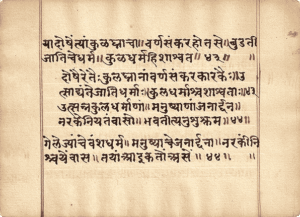 यादोषेंत्यांकुळघ्नाचा॥वर्णसंकरहोतसे॥बुडती
जातिचेधर्म॥कुळधर्महिशाश्वत॥४३॥
दोषैरेतैःकुलघ्नानांवर्णसंकरकारकैः॥उ
त्साद्यंतेजातिधर्माः॥कुलधर्माश्चशाश्वताः॥४३॥
उत्सन्नकुलधर्माणां॥मनुष्याणांजनार्दन
नरकेनियतंवासो॥भवतीत्यनुशुश्रुम॥४४॥
गेलेज्यांचेवंशधर्म॥मनुष्याचेजनार्दना॥नरकींनि
श्चयेंवास॥तयांआईकतोंअसे॥४४॥